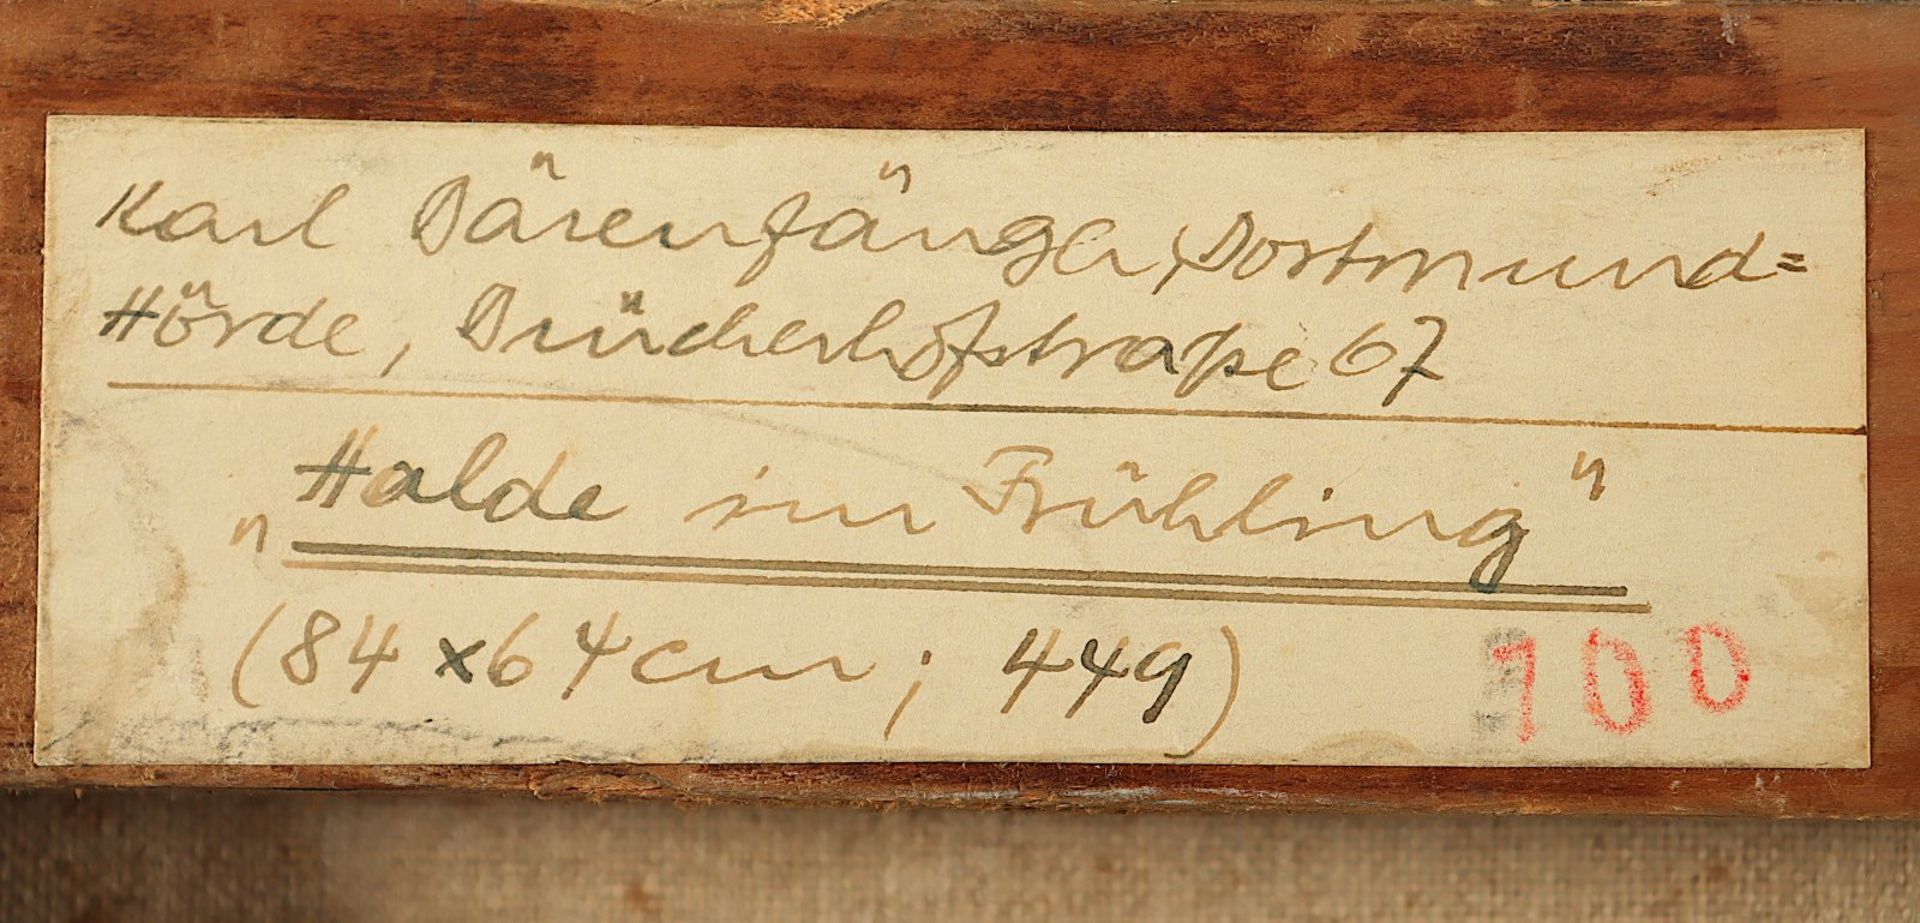 Karl Bärenfänger, Dortmund=
Hörde, Brücherhofstraße 67
"Halde im Frühling"
(84 x 64 cm; 449)
100